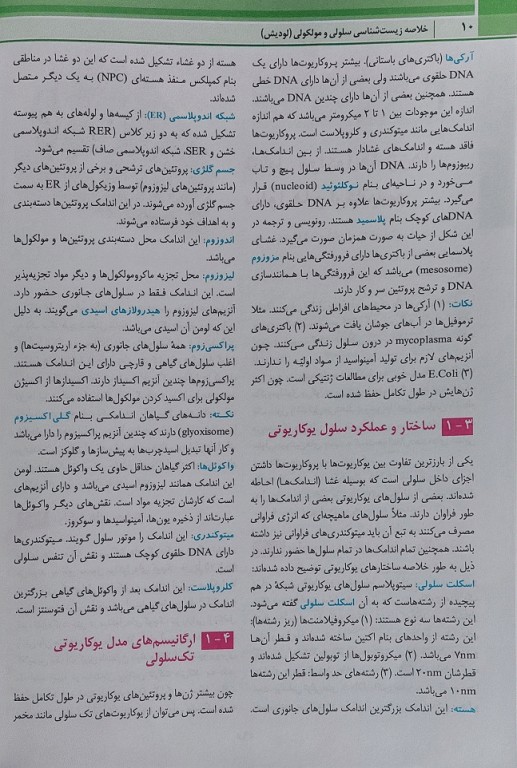 ۱۰ | خلاصه زیست‌شناسی سلولی و مولکولی (لودیش)
آرکی‌ها (باکتری‌های باستانی). بیشتر پروکاریوت‌ها دارای یک
DNA حلقوی می‌باشند ولی بعضی از آن‌ها دارای DNA خطی
هستند. همچنین بعضی از آن‌ها دارای چندین DNA می‌باشند.
اندازه این موجودات بین ۱ تا ۲ میکرومتر می‌باشد که هم اندازه
اندامک‌هایی مانند میتوکندری و کلروپلاست است. پروکاریوت‌ها
فاقد هسته و اندامک‌های غشادار هستند. از بین اندامک‌ها،
ریبوزوم‌ها را دارند. DNA آن‌ها در وسط سلول پیچ و تاب
می‌خورد و در ناحیه‌ای بنام نوکلئوئید (nucleoid) قرار
می‌گیرد. بیشتر پروکاریوت‌ها علاوه بر DNA حلقوی، دارای
DNAهای کوچک بنام پلاسمید هستند. رونویسی و ترجمه در
این شکل از حیات به صورت همزمان صورت می‌گیرد. غشای
پلاسمایی بعضی از باکتری‌ها دارای فرورفتگی‌هایی بنام مزوزوم
(mesosome) می‌باشد که این فرورفتگی‌ها با همانندسازی
DNA و ترشح پروتئین سر و کار دارند.
نکات: (۱) آرکی‌ها در محیط‌های افراطی زندگی می‌کنند. مثلا
ترموفیل‌ها در آب‌های جوشان یافت می‌شوند. (۲) باکتری‌های
گونه mycoplasma در درون سلول زندگی می‌کنند. چون
آنزیم‌های لازم برای تولید آمینواسید از مواد اولیه را ندارند.
(۳) E.Coli مدل خوبی برای مطالعات ژنتیکی است. چون اکثر
ژن‌هایش در طول تکامل حفظ شده است.
۳-۱ ساختار و عملکرد سلول یوکاریوتی
یکی از بارزترین تفاوت بین یوکاریوت‌ها با پروکاریوت‌ها داشتن
اجزای داخل سلولی است که بوسیله غشا (اندامک‌ها) احاطه
شده‌اند. بعضی از سلول‌های یوکاریوتی بعضی از اندامک‌ها را به
طور فراوان دارند. مثلاً سلول‌های ماهیچه‌ای که انرژی فراوانی
مصرف می‌کنند به تبع آن باید میتوکندری‌های فراوانی نیز داشته
باشند. همچنین تمام اندامک‌ها در تمام سلول‌ها حضور ندارند. در
ذیل به طور خلاصه ساختارهای یوکاریوتی توضیح داده شده‌اند:
اسکلت سلولی: سیتوپلاسم سلول‌های یوکاریوتی شبکهٔ در هم
پیچیده از رشته‌هاست که به آن اسکلت سلولی گفته می‌شود.
این رشته‌ها سه نوع هستند: (۱) میکروفیلامنت‌ها (ریز رشته‌ها):
این رشته از واحدهای بنام اکتین ساخته شده‌اند و قطر آن‌ها
۷nm می‌باشد. (۲) میکروتوبول‌ها از توبولین تشکیل شده‌اند و
قطرشان ۲۰nm است. (۳) رشته‌های حد واسط: قطر این رشته‌ها
۱۰nm می‌باشد.
هسته: این اندامک بزرگترین اندامک سلول‌های جانوری است.
هسته از دو غشاء تشکیل شده است که این دو غشا در مناطقی
بنام کمپلکس منفذ هسته‌ای (NPC) به یک دیگر متصل
شده‌اند.
شبکه آندوپلاسمی (ER): از کیسه‌ها و لوله‌های به هم پیوسته
تشکیل شده که به دو زیر کلاس (RER شبکه اندوپلاسمی
خشن و SER، شبکه اندوپلاسمی صاف) تقسیم می‌شود.
جسم گلژی: پروتئین‌های ترشحی و برخی از پروتئین‌های دیگر
(مانند پروتئین‌های لیزوزوم) توسط وزیکول‌های از ER به سمت
جسم گلژی آورده می‌شوند. در این اندامک پروتئین‌ها دسته‌بندی
و به اهداف خود فرستاده می‌شوند.
اندوزوم: این اندامک محل دسته‌بندی پروتئین‌ها و مولکول‌ها
می‌باشد.
لیزوزوم: محل تجزیه ماکرومولکول‌ها و دیگر مواد تجزیه‌پذیر
است. این اندامک فقط در سلول‌های جانوری حضور دارد.
آنزیم‌های لیزوزوم را هیدرولازهای اسیدی می‌گویند. به دلیل
این که لومن آن اسیدی می‌باشد.
پراکسی‌زوم: همهٔ سلول‌های جانوری (به جزء اریتروسیت‌ها) و
اغلب سلول‌های گیاهی و قارچی دارای این اندامک هستند.
پراکسی‌زوم‌ها چندین آنزیم اکسیداز دارند. اکسیدازها از اکسیژن
مولکولی برای اکسید کردن مولکول‌ها استفاده می‌کنند.
نکته: دانه‌های گیاهان اندامکی بنام گلی‌اکسیزوم
(glyoxisome) دارند که چندین آنزیم پراکسیزوم را دارا می‌باشد
و کار آنها تبدیل اسیدچرب‌ها به پیش‌سازها و گلوکز است.
واکوئل‌ها: اکثر گیاهان حداقل حاوی یک واکوئل هستند. لومن
این اندامک همانند لیزوزوم اسیدی می‌باشد و دارای آنزیم‌های
است که کارشان تجزیه مواد است. نقش‌های دیگر واکوئل‌ها
عبارتند‌از ذخیره یون‌ها، آمینواسیدها و سوکروز.
میتوکندری: این اندامک را موتور سلول گویند. میتوکندری‌ها
دارای DNA حلقوی کوچک هستند و نقش آن تنفس سلولی
است.
کلروپلاست: این اندامک بعد از واکوئل‌های گیاهی بزرگترین
اندامک در سلول‌های گیاهی می‌باشد و نقش آن فتوسنتز است.
۴-۱ ارگانیسم‌های مدل یوکاریوتی
تک‌سلولی
چون بیشتر ژن‌ها و پروتئین‌های یوکاریوتی در طول تکامل حفظ
شده است. پس می‌توان از یوکاریوت‌های تک سلولی مانند مخمر